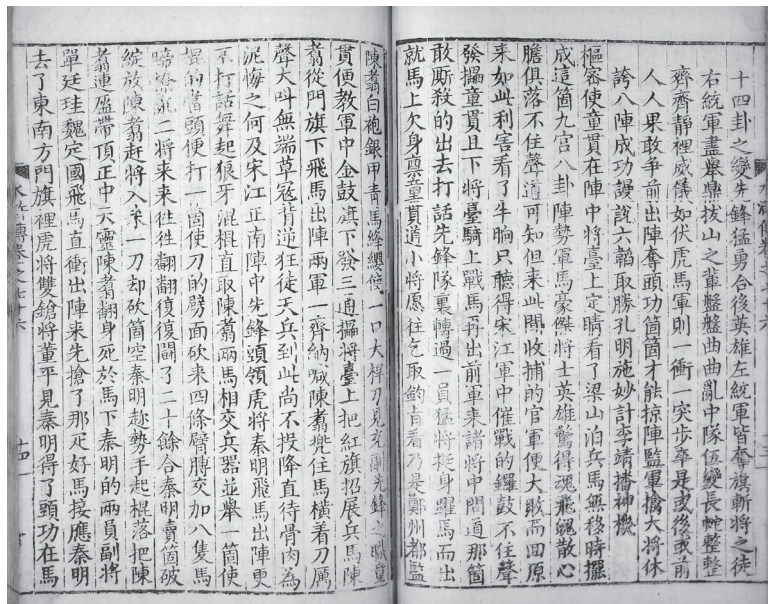 水滸傳卷之七十六 十三
十四卦之變先鋒猛勇合後英雄左統軍皆奪旗斬將之徒
右統軍盡舉鼎拔山之輩盤盤曲曲亂中隊伍變長蛇整整
齊齊靜裡威儀如伏虎馬軍則一衝一突步卒是或後或前
人人果敢爭前出陣奪頭功箇箇才能掠陣監軍擒大將休
誇八陣成功謾說六韜取勝孔明施妙計李靖播神機
樞密使童貫在陣中將臺上定睛看了梁山泊兵馬無移時擺
成這箇九宮八卦陣勢軍馬豪傑將士英雄驚得魂飛魄散心
膽俱落不住聲道可知但來此間收捕的官軍便大敗而回原
來如此利害看了半晌只聽得宋江軍中催戰的鑼鼓不住聲
發擂童貫且下將臺騎上戰馬再出前軍來諸將中問道那箇
敢廝殺的出去打話先鋒隊裏轉過一員猛將挺身躍馬而出
就馬上欠身稟童貫道小將愿往乞取鈞旨看乃是鄭州都監
陳翥白袍銀甲青馬絳纓使一口大桿刀見充副先鋒之職童
貫便教軍中金鼓旗下發三通擂將臺上把紅旗招展兵馬陳
翥從門旗下飛馬出陣兩軍一齊吶喊陳翥兜住馬橫着刀厲
聲大叫無端草寇背逆狂徒天兵到此尚不投降直待骨肉為
泥悔之何及宋江正南陣中先鋒頭領虎將秦明飛馬出陣更
不打話舞起狼牙混棍直取陳翥兩馬相交兵器並舉一箇使
棍的當頭便打一箇使刀的劈面砍來四條臂膊交加八隻馬
蹄撩亂二將來來徃徃翻翻復復鬪了二十餘合秦明賣箇破
綻放陳翥赶將入來一刀却砍箇空秦明趂勢手起棍落把陳
翥連盔帶頂正中天靈陳翥翻身死於馬下秦明的兩員副將
單廷珪魏定國飛馬直衝出陣來先搶了那疋好馬接應秦明
去了東南方門旗裡虎將雙鎗將董平見秦明得了頭功在馬
水滸傳卷之七十六 十四